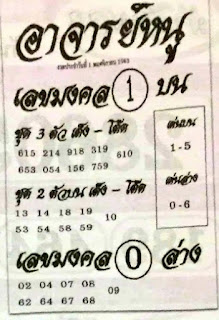 อาจารย์หนู
งวดประจำวันที่ 1 พฤศจิกายน 2563
เลขมงคล 1 บน
ชุด 3 ตัว เต็ง - โต๊ด
615 214 918 319
610
653 054 156 759
เด่นบน
1-5
ชุด 2 ตัวบน เต็ง - โต๊ด
13 14 18 19
10
53 54 58 59
เด่นล่าง
0-6
เลขมงคล 0 ล่าง
02 04 07 08
09
62 64 67 68